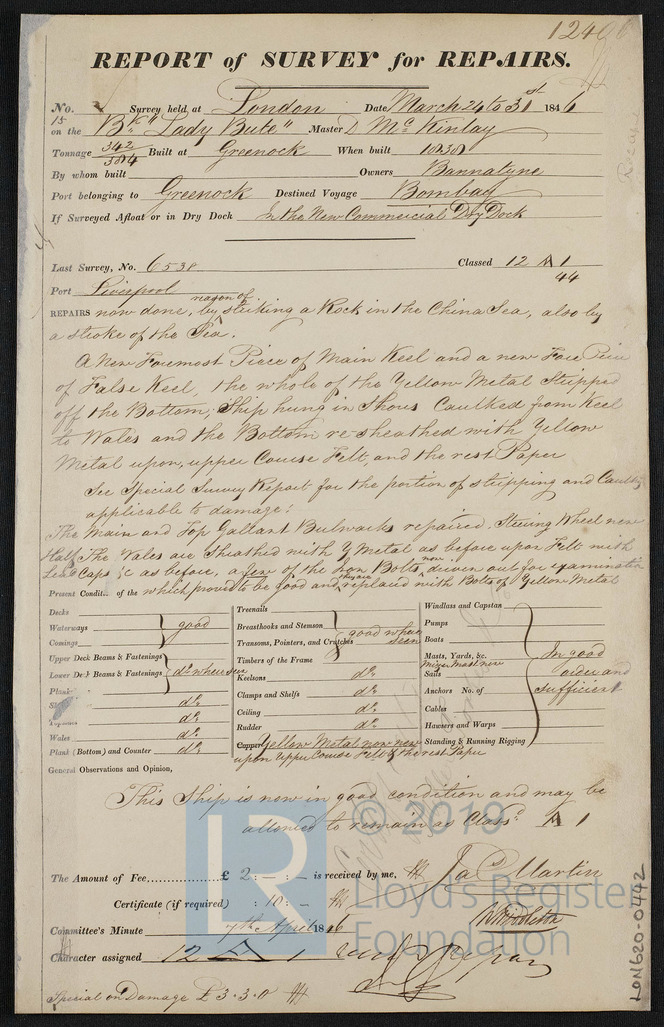 REPORT of SURVEY for REPAIRS.
No. 15 Survey held at London Date March 24 to 31st 1846
on the Bk "Lady Bute" Master D McKinlay
Tonnage 342/384 Built at Greenock When built 1838
By whom built Owners Bannatyne
Port belonging to Greenock Destined Voyage Bombay
If Surveyed Afloat or in Dry Dock In the New Commercial Dry Dock
Last Survey, No. 6538 Classed 12 A 1
44
Port Liverpool
REPAIRS now done, by reason of striking a Rock in the China Sea, also by
a stroke of the Sea.
A New Foremost Piece of Main Keel and a new Fore Piece
of False Keel, the whole of the Yellow Metal Stripped
off the Bottom, Ship hung in Shores Caulked from Keel
to Wales and the Bottom re-sheathed with Yellow
Metal upon, upper Course Felt, and the rest Paper
See Special Survey Report for the portion of stripping and Caulkg
applicable to damage;
The Main and Top Gallant Bulwarks repaired. Steering Wheel new
Half The Wales are Sheathed with Y Metal as before upon Felt with
caps &c as before, a few of the Iron Bolts, now driven out for examination
Present Condit.. of the which proved to be good and replaced with Bolts of Yellow Metal
Decks
Waterways good
Comings
Upper Deck Beams & Fastenings
Lower Deck Beams & Fastenings do where seen
Plank
do
do
Wales do
Plank (Bottom) and Counter do
Treenails
Breasthooks and Stemson
Transoms, Pointers, and Crutches good where seen
Timbers of the Frame
Keelsons do
Clamps and Shelfs do
Ceiling do
Rudder do
Copper Yellow Metal now new
upon Upper Course Felt & the rest Paper
Windlass and Capstan
Pumps
Boats
Masts, Yards, &c. In good
Mizen Mast new
Sails order and
Anchors No. of sufficient
Cables
Hawsers and Warps
Standing & Running Rigging
General Observations and Opinion,
This Ship is now in good condition and may be
allowed to remain as Classd A 1
The Amount of Fee £ 2 : - : - is received by me,
Jas Martin
Certificate (if required) : 10 : -
Committee's Minute 7th April 1846
Character assigned 12 A 1
Special on Damage £ 3.3.0
© 2019
LR
Lloyd's Register
Foundation
LON620-0442